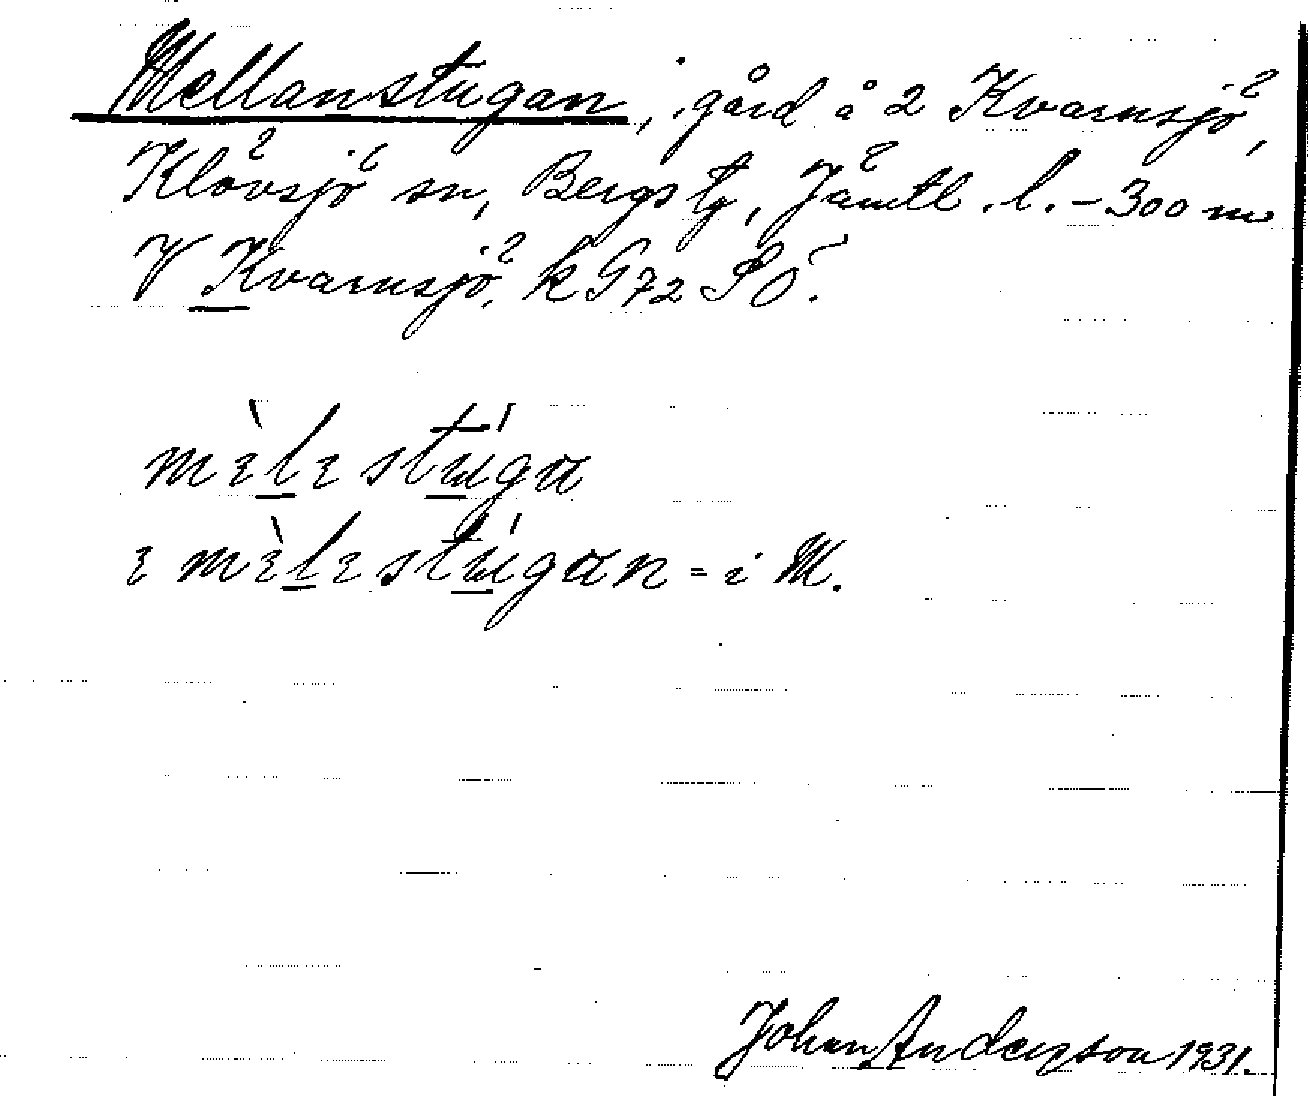 Mellanstugan, gård å 2 Kvarnsjö,
Klövsjö sn, Bergs tg, Jämtl. l. - 300 m
V Kvarnsjö, k G72 SO.
mɛ̀lɛstúga
ɛ mɛ̀lɛstúgan = i M.
Johan Anderson 1931.